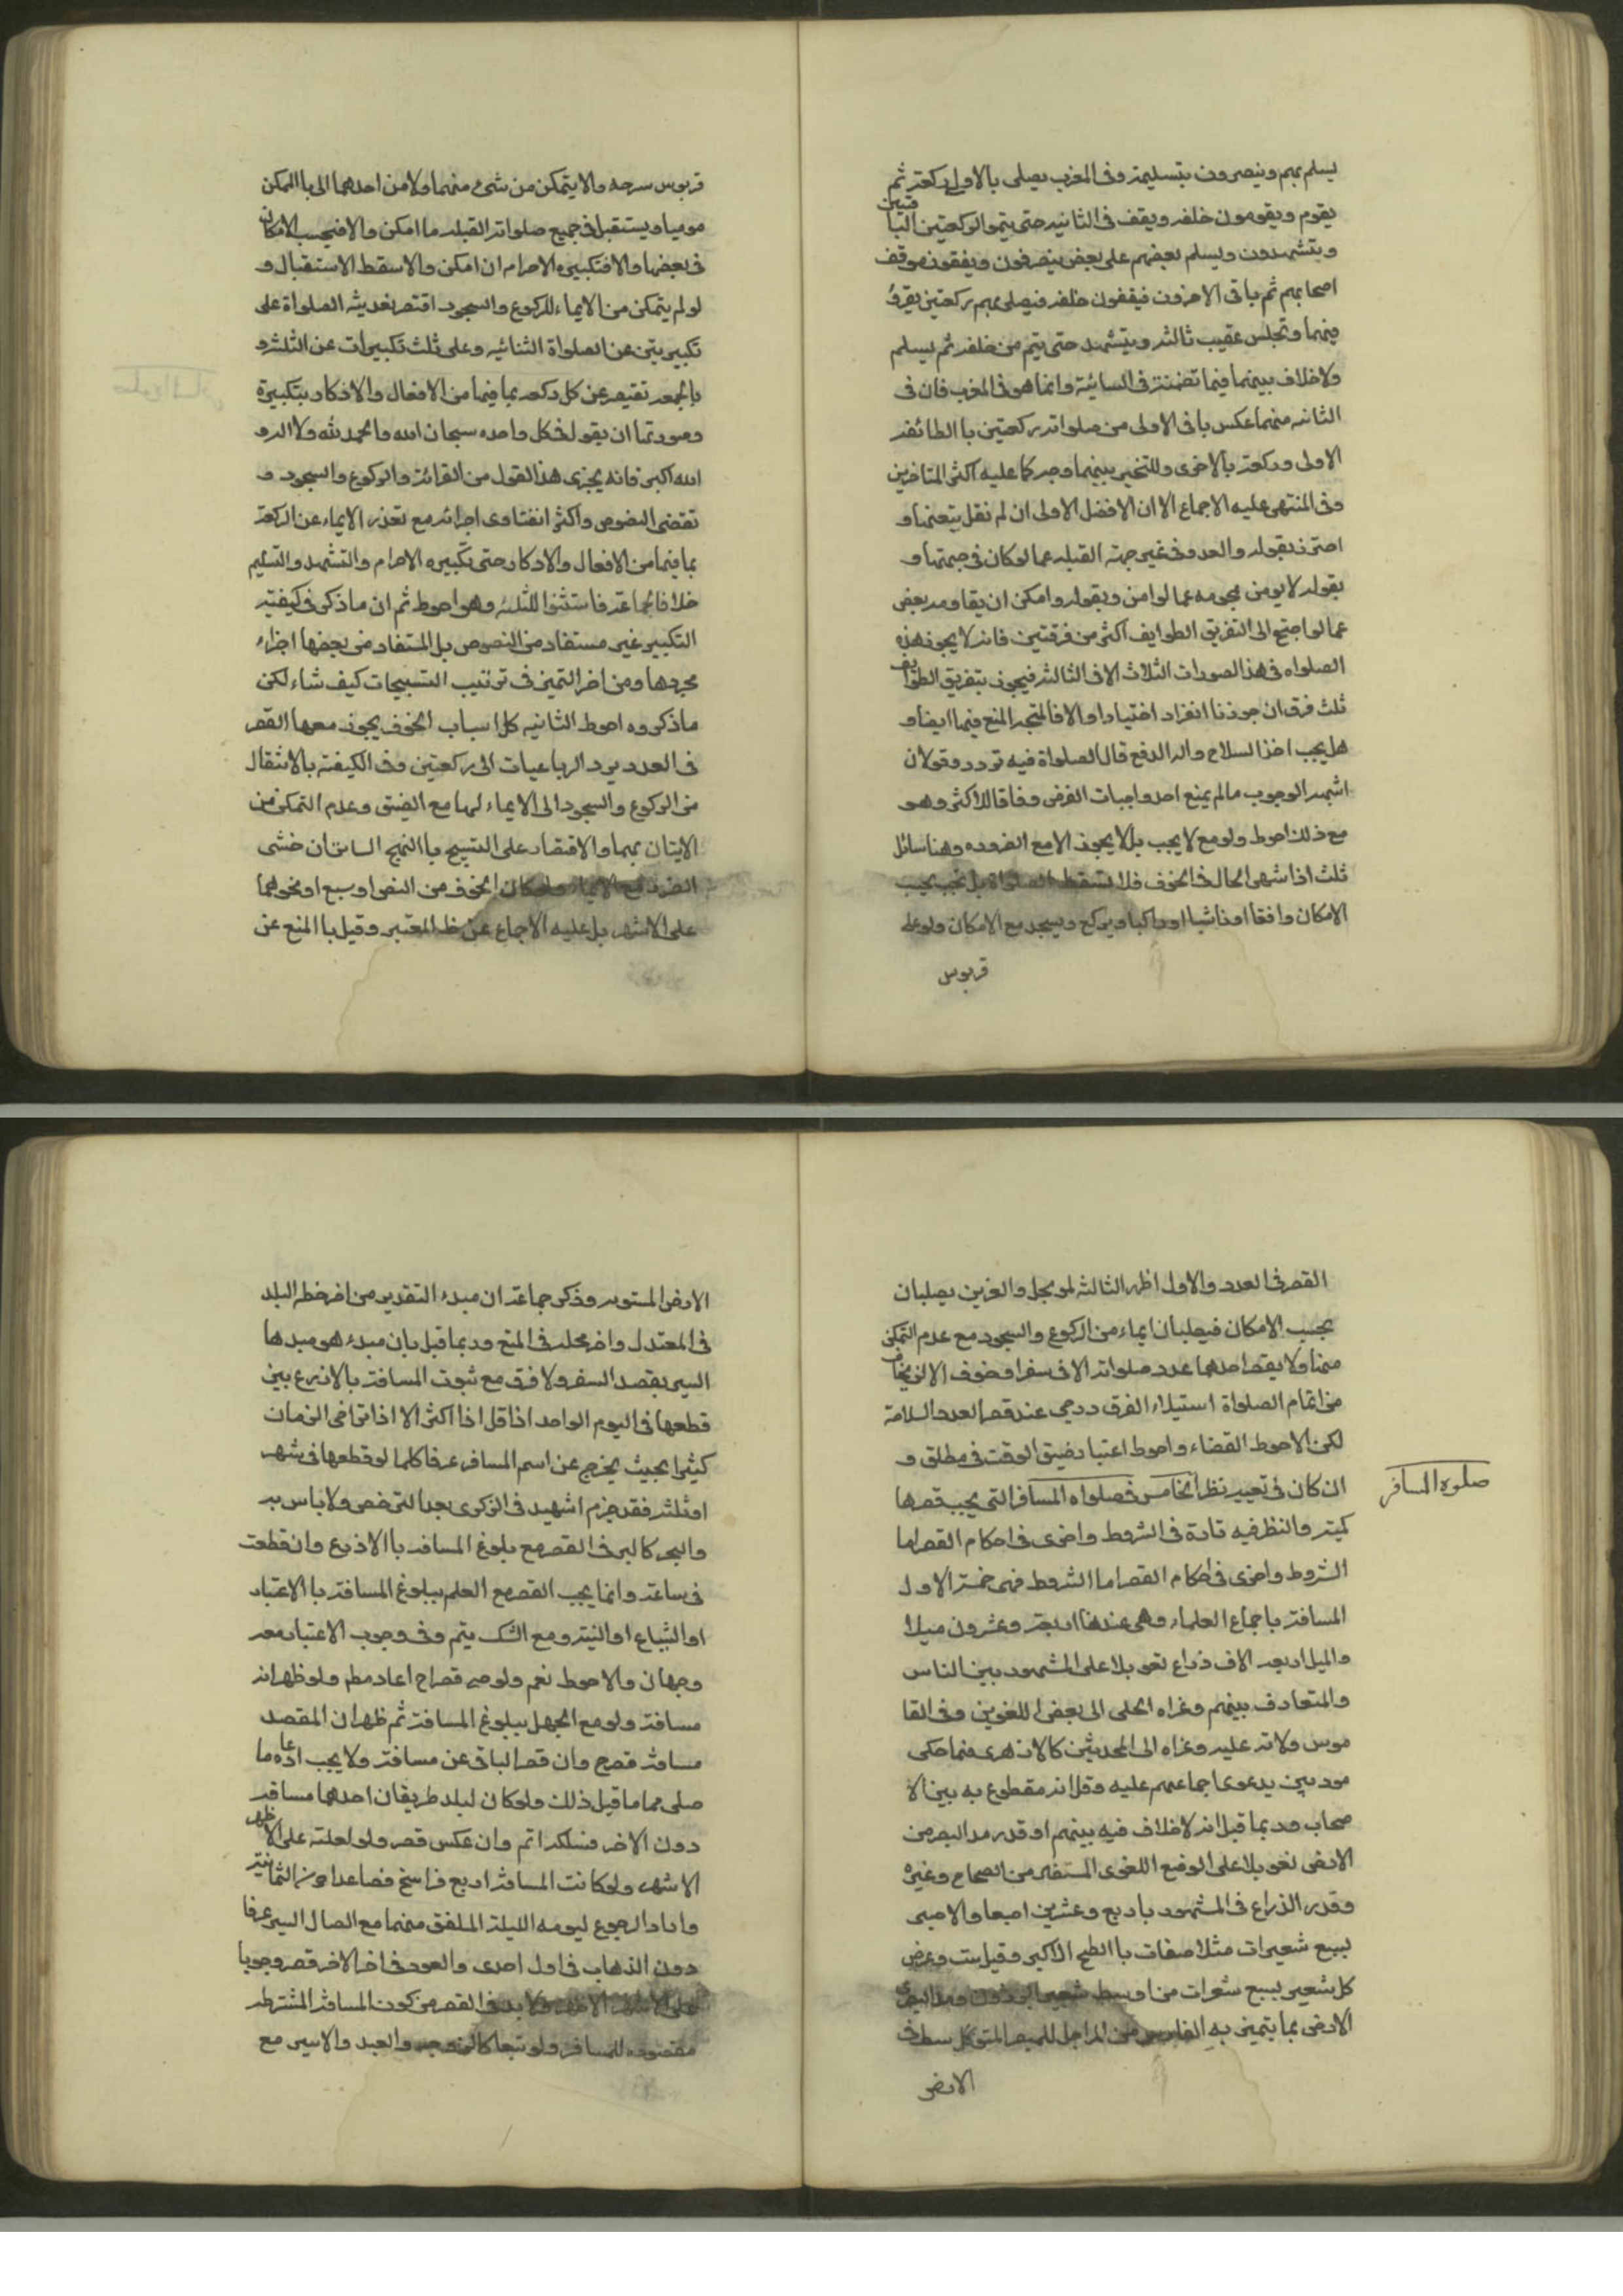 يسلم بهم وينصرفون بتسليمة وفى المغرب يصلى بالاولى ركعة ثم
يقوم ويقومون خلفه ويقف فى الثانيه حتى يتموا الركعتين الباقيتين
ويتشهدون ويسلم بعضهم على بعض ينصرفون ويقفون موقف
اصحابهم ثم ياتى الاخرون فيقفون خلفه فيصلى بهم ركعتين يقرؤ
فيهما وتجلس عقيب ثالثه ويتشهد حتى يتم من خلفه ثم يسلم
ولا خلاف بينهما فيما تضمنته فى السائية وانما هو فى المغرب فان فى
الثانيه منهما عكس باقى الاولى من صلواته ركعتين با الطائفه
الاولى وركعة بالاخرى وللتخيير بينهما وجه كما عليه اكثر المتاخرين
وفى المنتهى عليه الاجماع الا ان الافضل الاولى ان لم نقل بتعينها و
احترز بقوله والعدو فى غير جهة القبله عما لو كان فى جهتها و
بقوله لا يومن هجومه عما لو امن وبقوله وامكن ان يقاومه بعض
عما لو احتيج الى التفريق الطوايف اكثر من فرقتين فانه لا يجوز هذه
الصلواه فى هذا الصورات الثلاث الا فى الثالثه فيجوز بتفريق الطوايف
ثلث فرق ان جوزنا انفراد اختيارا والا فالمتجه المنع فيها ايضا و
هل يجب اخذ السلاح واله الدفع قال الصلواة فيه تردد وقولان
اشهره الوجوب مالم يمنع احد واجبات الفرض وفاقا للاكثر وهو
مع ذلك احوط ولو مع لا يجب بل لا يجوز الا مع الضروره وهنا مسائل
ثلث اذا انتهى الحال فى الخوف فلا تسقط الصلواة بل تجب بحسب
الامكان واقفا او ماشيا او راكبا ويركع ويسجد مع الامكان ولو على
قربوس
قربوس سرجه والا يتمكن من شىء منهما ولا من احدهما اتى با الممكن
موميا ويستقبل فى جميع صلواته القبله ما امكن والا فبحسب الامكان
فى بعضها والا فتكبيره الاحرام ان امكن والا سقط الاستقبال و
لو لم يتمكن من الايماء للركوع والسجود اقتصر بعد نية الصلواة على
تكبيرتين عن الصلواة الثنائيه وعلى ثلث تكبيرات عن الثلثيه و
بالجمعه تقتصر عن كل ركعه بما فيها من الافعال والاذكار بتكبيرة
وصورتها ان يقول فى كل واحده سبحان الله والحمد لله ولا اله و
الله اكبر فانه يجزى هذا القول من القرائة والركوع والسجود و
تقتضى النصوص واكثر الفتاوى اجرائه مع تعذر الايماء عن الركعة
بما فيها من الافعال والاذكار حتى تكبيره الاحرام والتشهد والتسليم
خلافا لجماعة فاستثنوا للثلثه وهو احوط ثم ان ما ذكر فى كيفيته
التكبير غير مستفاد من النصوص بل المستفاد من بعضها اجزاء
مجردها ومن اخر التميز فى ترتيب التسبيحات كيف شاء لكن
ما ذكروه احوط الثانيه كل اسباب الخوف يجوز معها القصر
فى العدد برد الرباعيات الى ركعتين وفى الكيفية بالانتقال
من الركوع والسجود الى الايماء لهما مع الضيق وعدم التمكن من
الاتيان بهما والاقتصار على التسبيح با النهج السابق ان خشى
الضرر مع الايماء ولو كان الخوف من اللص او سبع او نحوهما
على الاشهر بل عليه الاجماع عن ظ المعتبر وقيل با المنع عن
القصر فى العدد والاول اظهر الثالثه لموتجل والغرين يصليان
بحسب الامكان فيصليان ايماء من الركوع والسجود مع عدم التمكن
منها ولا يقصر احدهما عدد صلواته الا فى سفر او خوف الا ان يخاف
من اتمام الصلواة استيلاء الغرق ورجى عند قصر العدد السلامة
لكن الاحوط القضاء واحوط اعتبار ضيق الوقت فى مطلق و
ان كان فى تعيينه نظر الخامس فى صلواه المسافر التى يجب قصرها
صلوه المسافر
كمية والنظر فيه تارة فى الشروط واخرى فى احكام القصر اما
الشروط واخرى فى احكام القصر اما الشروط فهى خمسة الاول
المسافة باجماع العلماء وهى عندنا اربعة وعشرون ميلا
والميل اربعه الاف ذراع تعويلا على المشهور بين الناس
والمتعارف بينهم وعزاه الحلى الى بعض اللغويين وفى القا
موس ولاته عليه وعزاه الى المحدثين كالازهرى فيما حكى
مود بين يدعوى اجماعهم عليه وقل انه مقطوع به بين الا
صحاب وربما قيل انه لا خلاف فيه بينهم او قدر مد البصر من
الارض تعويلا على الوضع اللغوى المستفاد من الصحاح وغيره
وقدر الذراع فى المشهور باربع وعشرين اصبعا والاصبع
بسبع شعيرات متلاصقات با الطح الاكبر وقيل ست وعرض
كل شعير بسبع شعرات من اوسط شعير البرذون ومد البصر فى
الارض بما يتميز به الفارس من الراجل للمبصر المتوكل سطح
الارض
الارض المستويه وذكر جماعة ان مبدء التقدير من اخر خطه البلد
فى المعتدل واخر محلة فى المتسع وربما قيل بان مبدء هو مبدها
السير بقصد السفر ولا فرق مع ثبوت المسافة بالاذرع بين
قطعها فى اليوم الواحد اذا قل اذا اكثر الا اذا تراخى الزمان
كثيرا بحيث يخرج عن اسم المسافر عرفا كلما لو قطعها فى شهر
او ثلثه فقد جزم اشهيد فى الذكرى بعد الترخص ولا باس به
والبحر كالبر فى القصر مع بلوغ المسافه با الاذرع وان قطعت
فى ساعة وانما يجب القصر مع العلم ببلوغ المسافة با الاعتبار
او الشياع او البينة ومع الشك يتم وفى وجوب الاعتبار معه
وجهان والاحوط نعم ولو صر قصر اح اعاد مطم ولو ظهر انه
مسافة ولو مع الجهل ببلوغ المسافة ثم ظهر ان المقصد
مسافة قصر ح وان قصر الباقى عن مسافة ولا يجب اعاده ما
صلى تماما قبل ذلك ولو كان لبلد طريقان احدهما مسافه
دون الاخر فسلكه اتم وان عكس قصر ولو لعلة على الاظهر
الاشهر ولو كانت المسافة اربع فراسخ فصاعدا دون الثمانية
واراد الرجوع ليومه الليلة الملفق منهما مع اتصال السير عرفا
دون الذهاب فى اول احدى والعود فى اخر الاخر قصر وجوبا
على الاشهر الاظهر ولا بد فى القصر من كون المسافة المشترطه
مقصوده للمسافر ولو تبعا كالزوجه والعبد والاسير مع